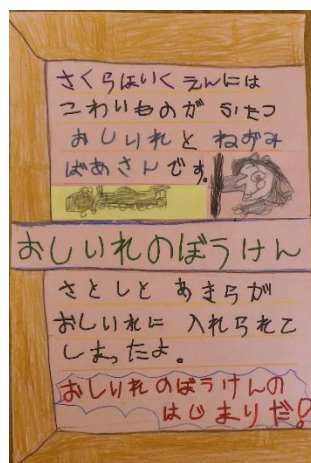 さくらほいくえんには
こわいものが ふたつ
おしいれと ねずみ
ばあさんです。
おしいれのぼうけん
さとしと あきらが
おしいれに 入れられて
しまったよ。
おしいれのぼうけんの
はじまりだ!